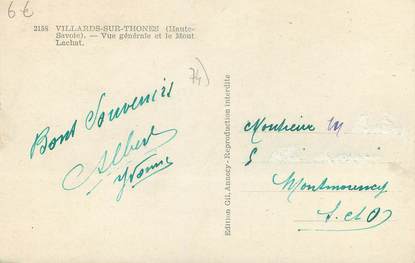 6€
2158 VILLARDS-SUR-THONES (Haute-
Savoie). — Vue générale et le Mont
Lachat.
74)
Bons Souvenirs
Albert
Yvonne
Edition Gil, Annecy - Reproduction interdite
Monsieur
Montmorency
S. et O.